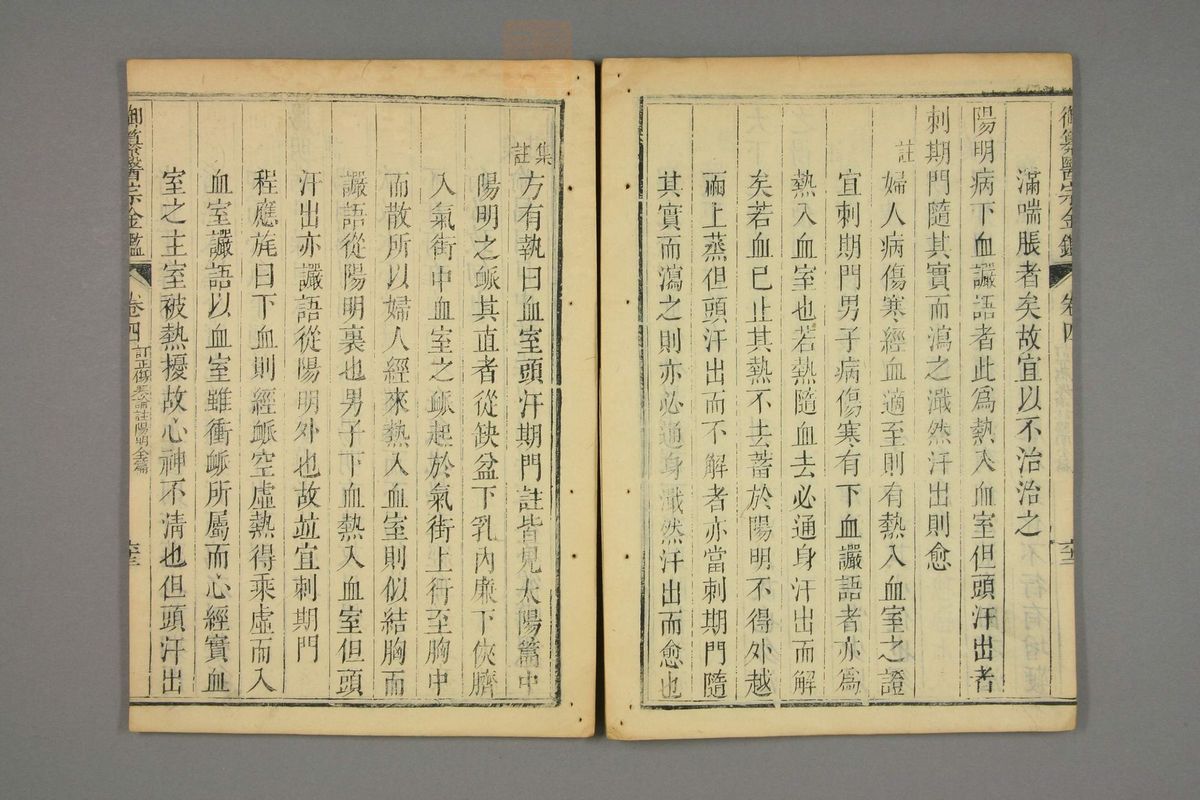 御纂醫宗金鑑 卷四
滿喘脹者矣故宜以不治治之
陽明病下血讝語者此爲熱入血室但頭汗出者
刺期門隨其實而瀉之濈然汗出則愈
註
婦人病傷寒經血適至則有熱入血室之證
宜刺期門男子病傷寒有下血讝語者亦爲
熱入血室也若熱隨血去必通身汗出而解
矣若血已止其熱不去蓄於陽明不得外越
而上蒸但頭汗出而不解者亦當刺期門隨
其實而瀉之則亦必通身濈然汗出而愈也
集註
方有執曰血室頭汗期門註皆見太陽篇中
陽明之䘑其直者從缺盆下乳內廉下俠臍
入氣街中血室之䘑起於氣街上行至胸中
而散所以婦人經來熱入血室則似結胸而
讝語從陽明裏也男子下血熱入血室但頭
汗出亦讝語從陽明外也故並宜刺期門
程應旄曰下血則經䘑空虛熱得乘虛而入
血室讝語以血室雖衝䘑所屬而心經實血
室之主室被熱擾故心神不淸也但頭汗出
御纂醫宗金鑑 卷四 訂正傷寒論註陽明全篇